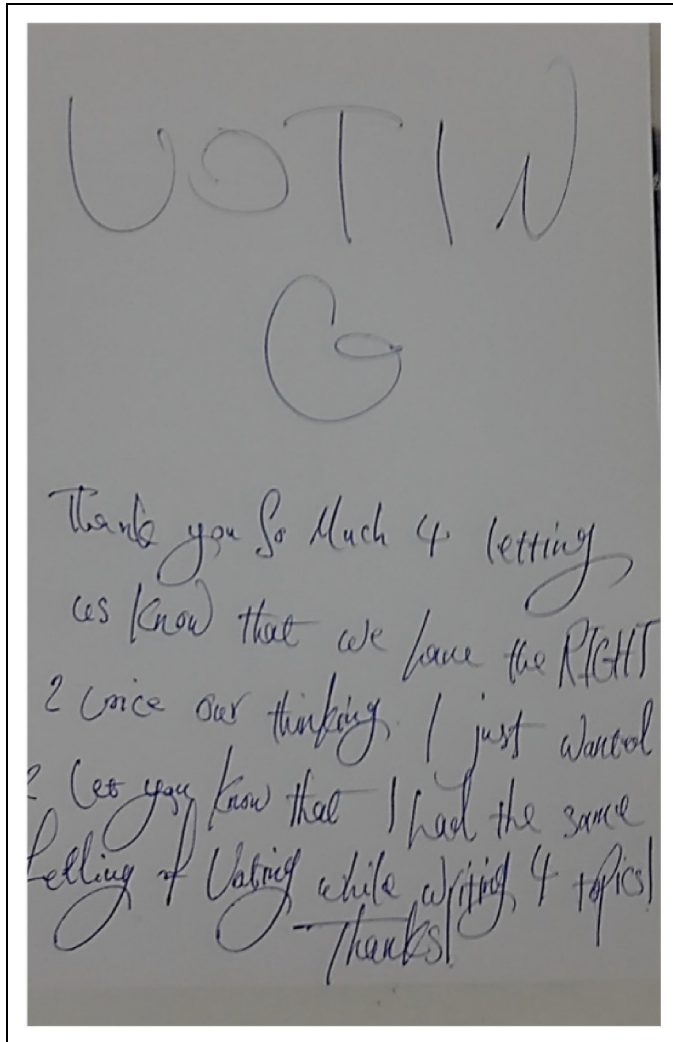 VOTIN
G
Thank you So Much 4 letting
us know that we have the RIGHT
2 voice our thinking. I just wanted
2 let you know that I had the same
felling of Voting while writing 4 topics!
Thanks!